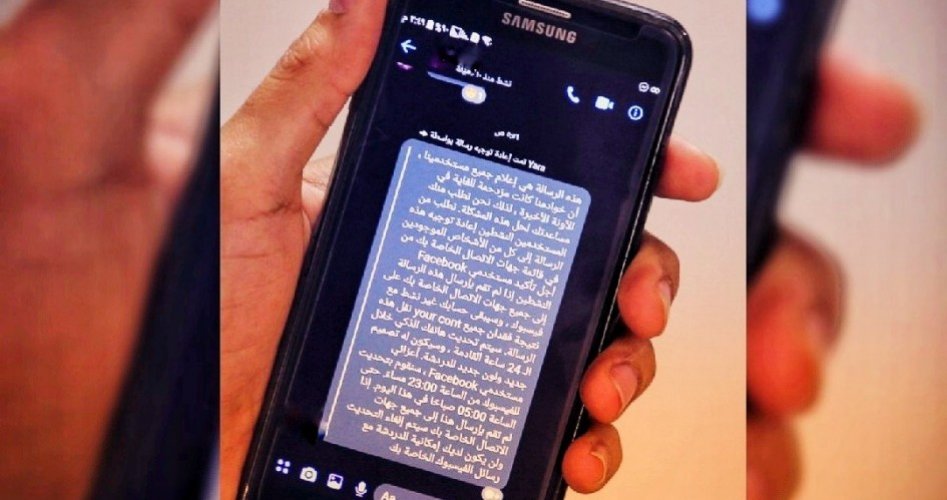 SAMSUNG
نشط منذ
تمت إعادة توجيه رسالة بواسطة Yara
هذه الرسالة هي إعلام جميع مستخدمينا ,
أن خوادمنا كانت مزدحمة للغاية في
الآونة الأخيرة , لذلك نحن نطلب منك
مساعدتك لحل هذه المشكلة. نطلب من
المستخدمين النشطين إعادة توجيه هذه
الرسالة إلى كل من الأشخاص الموجودين
في قائمة جهات الاتصال الخاصة بك من
أجل تأكيد مستخدمي Facebook
النشطين إذا لم تقم بإرسال هذه الرسالة
إلى جميع جهات الاتصال الخاصة بك على
فيسبوك , وسيبقى حسابك غير نشط مع
نتيجة فقدان جميع your cont نقل هذه
الرسالة. سيتم تحديث هاتفك الذكي خلال
الـ 24 ساعة القادمة , وسيكون له تصميم
جديد ولون جديد للدردشة. أعزائي
مستخدمي Facebook , سنقوم بتحديث
للفيسبوك من الساعة 23:00 مساءً. حتى
الساعة 05:00 صباحًا في هذا اليوم. إذا
لم تقم بإرسال هذا إلى جميع جهات
الاتصال الخاصة بك سيتم إلغاء التحديث
ولن يكون لديك إمكانية للدردشة مع
رسائل الفيسبوك الخاصة بك
Aa